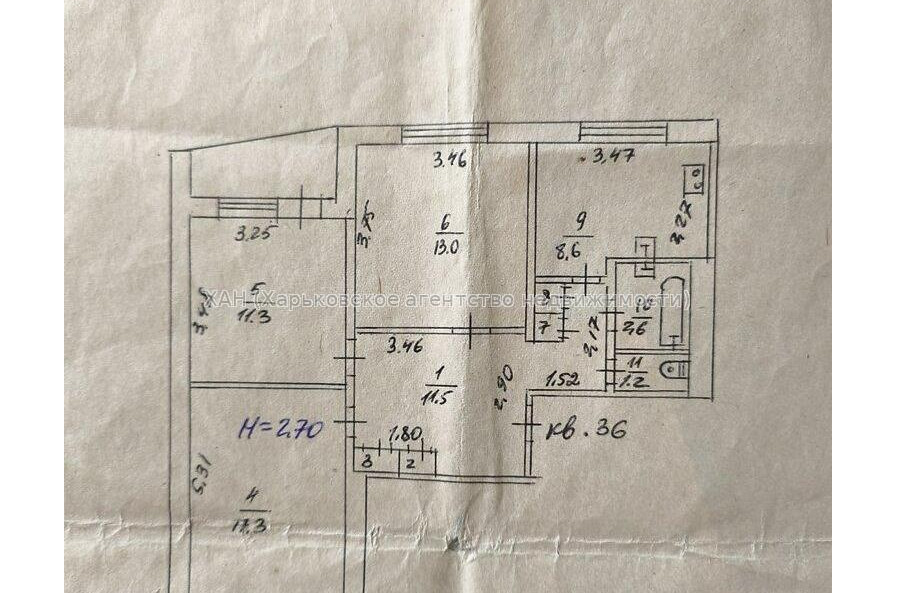 3.46
3,47
3,25
3.75
6
13.0
9
8,6
3,27
5
11.3
8
7
3,17
10
2,6
ХАН (Харьковское агентство недвижимости)
3.46
1
11.5
2,90
1,52
11
1.2
H=2.70
1.80
кв. 36
3
2
5.31
4
17.3